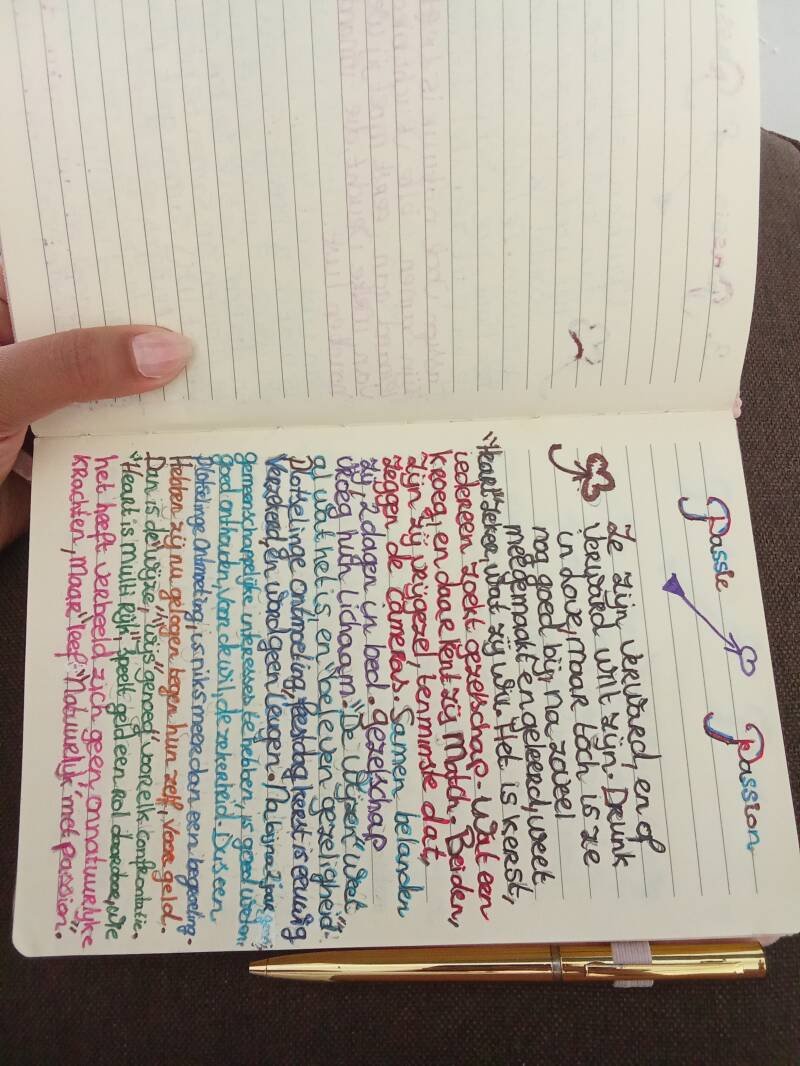 Passion
Passie
Ze zijn verward, en of
verward wilt zijn. Drunk
in love, maar toch is ze
nog goed bij, na zoveel
meegemaakt en geleerd, weet
"Heart" zeker, wat zij wil. Het is kerst,
iedereen zoekt gezelschap. Wat een
kroeg, en daar ent zij Match. Beiden,
zijn zij vrijgezel, tenminste dat,
zeggen de cameras. Samen belanden
zij, 2 dagen in bed. gezelschap
vroeg hun lichaam. "De Wijzen" weet
al wat het is, en beleven gezeligheid.
Plotselinge ontmoeting, feestdag kerst is eeuwig
en word geen leugen. Na bijna 2 jaar
gemeenschappelijke interesses te hebben, is goed weten
goed onthouden, voor ik wil, de zekerheid. Dus een
plotselinge ontmoeting, is niks meer dan een begroeting.
Hebben zij nu gelogen tegen hun zelf, voor geld.
Den is de wijze, "wijs genoeg" voor elk confrontatie.
"Heart is multi Rijk", speelt geld een rol daardoor, wie
het heeft verbeeld zich geen, onnatuurlijke
krachten, maar "leef "Natuurlijk" met passion.